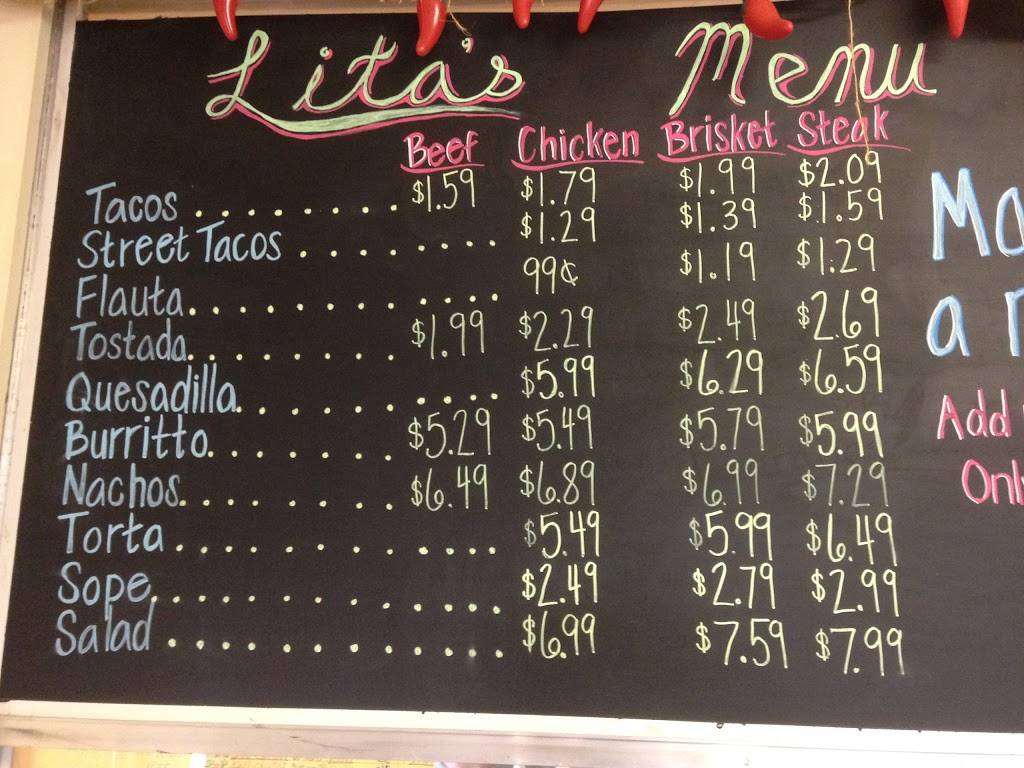 Lita's Menu
Beef Chicken Brisket Steak
Tacos . . . . . . . . $1.59 $1.79 $1.99 $2.09
Street Tacos . . . . . . . . $1.29 $1.39 $1.59
Flauta . . . . . . . . . . . . 99¢ $1.19 $1.29
Tostada . . . . . . . . $1.99 $2.29 $2.49 $2.69
Quesadilla . . . . . . . . . . $5.99 $6.29 $6.59
Burritto . . . . . . . . $5.29 $5.49 $5.79 $5.99
Nachos . . . . . . . . $6.49 $6.89 $6.99 $7.29
Torta . . . . . . . . . . . . $5.49 $5.99 $6.49
Sope . . . . . . . . . . . . . $2.49 $2.79 $2.99
Salad . . . . . . . . . . . . $6.99 $7.59 $7.99
a
Add